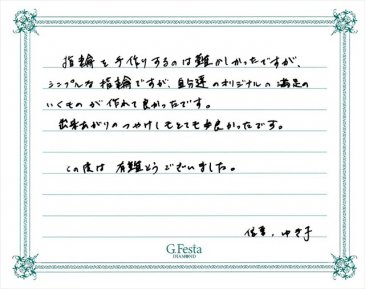 指輪を手作りするのは難かしかったですが、
シンプルな指輪ですが、自分達のオリジナルの満足の
いくものが作れて良かったです。
出来あがりのつやけしもとても良かったです。
この度は有難とうございました。
ゆき子
G.Festa
DIAMOND